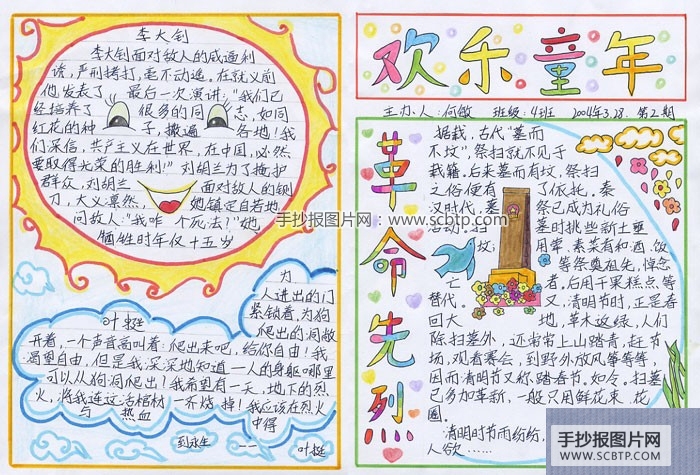 李大钊
李大钊面对敌人的威逼利
诱,严刑拷打,毫不动遥,在就义前
他发表了 最后一次演讲:"我们已
经培养了 很多的同 志,如同
红花的种 子,撒遍 各地!我
们深信,共产主义在世界,在中国,必然
要取得光荣的胜利!"刘胡兰为了掩护
群众,刘胡兰 面对敌人的铡
刀,大义凛然, 她镇定自若地
问敌人:"我咋个死法?"她
牺牲时年仅十五岁
叶挺
为
人进出的门
紧锁着,为狗
爬出的洞敞
开着,一个声音高叫着:爬出来吧,给你自由!我
渴望自由,但是我深深地知道—人的身躯哪里
可以从狗洞爬出?我希望有一天,地下的烈
火,将我连这活棺材一齐烧掉!我应该在烈火
与 热血 中得
到永生 —— 叶挺
欢乐童年
主办人:何敏 班级:4班 2004年3.28 第2期
革命先烈
据载,古代"墓而
不坟",祭扫就不见于
载籍。后来墓而有坟,祭扫
之俗便有 了依托。秦
汉时代,墓 祭已成为礼俗
活动。扫 墓时挑些新土垂
坟; 用荤、素菜有和酒、饭
等祭奠祖先,悼念
亡 者,后用干果糕点等
替代。 又,清明节时,正是春
回大 地,草木返绿,人们
除扫墓外,还常常上山踏青,赶节
场,观看赛会,到野外放风筝等等,
因而清明节又称踏春节。如今,扫墓
已多加革新,一般只用鲜花束、花
圈。
清明时节雨纷纷,
人欲……
手抄报图片网:www.scbtp.com
手抄报图片网
WWW.SCBTP.COM